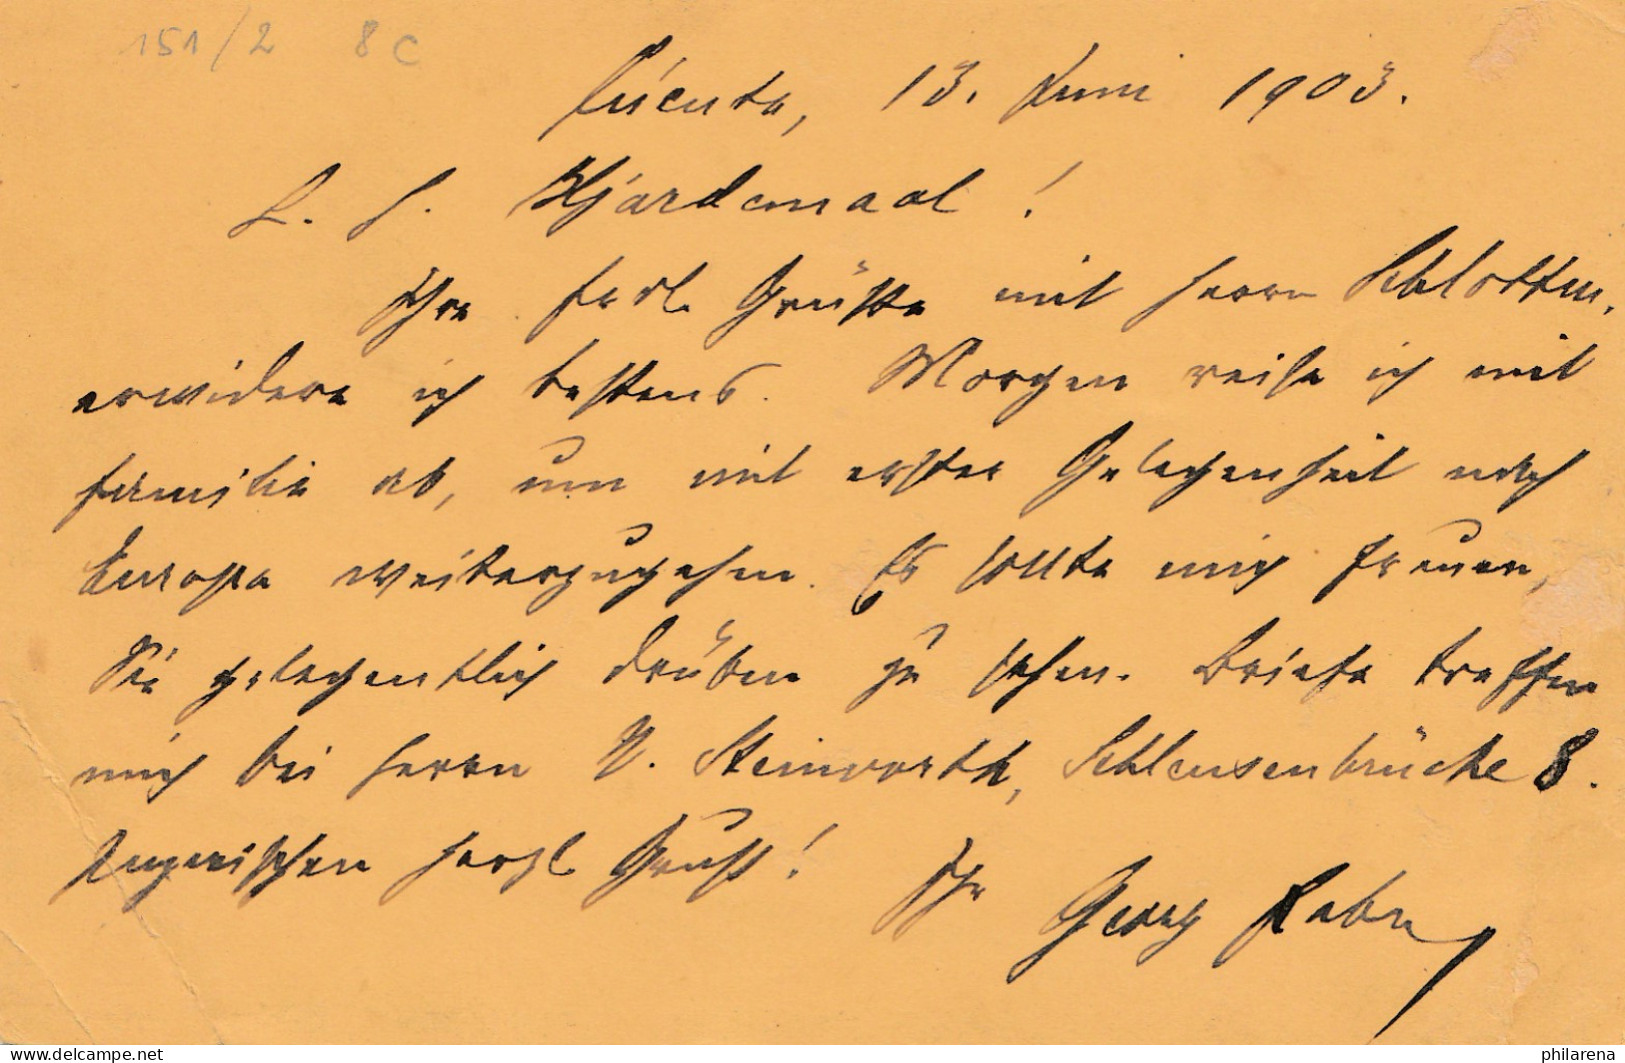 151/2 8c
Cúcuta, 13. Juni 1903.
L. H. Hjardemaal!
Ihre frdl. Grüße mit Herrn Schlottm.
erwidere ich bestens. Morgen reise ich mit
Familie ab, um mit erster Gelegenheit nach
Europa weiterzugehen. Es sollte mich freuen,
Sie gelegentlich drüben zu sehen. Briefe treffen
mich bei Herrn N. Steinvorth, Schleusenbrücke 8.
Inzwischen herzl. Gruß! Ihr Georg
philarena
delcampe.net